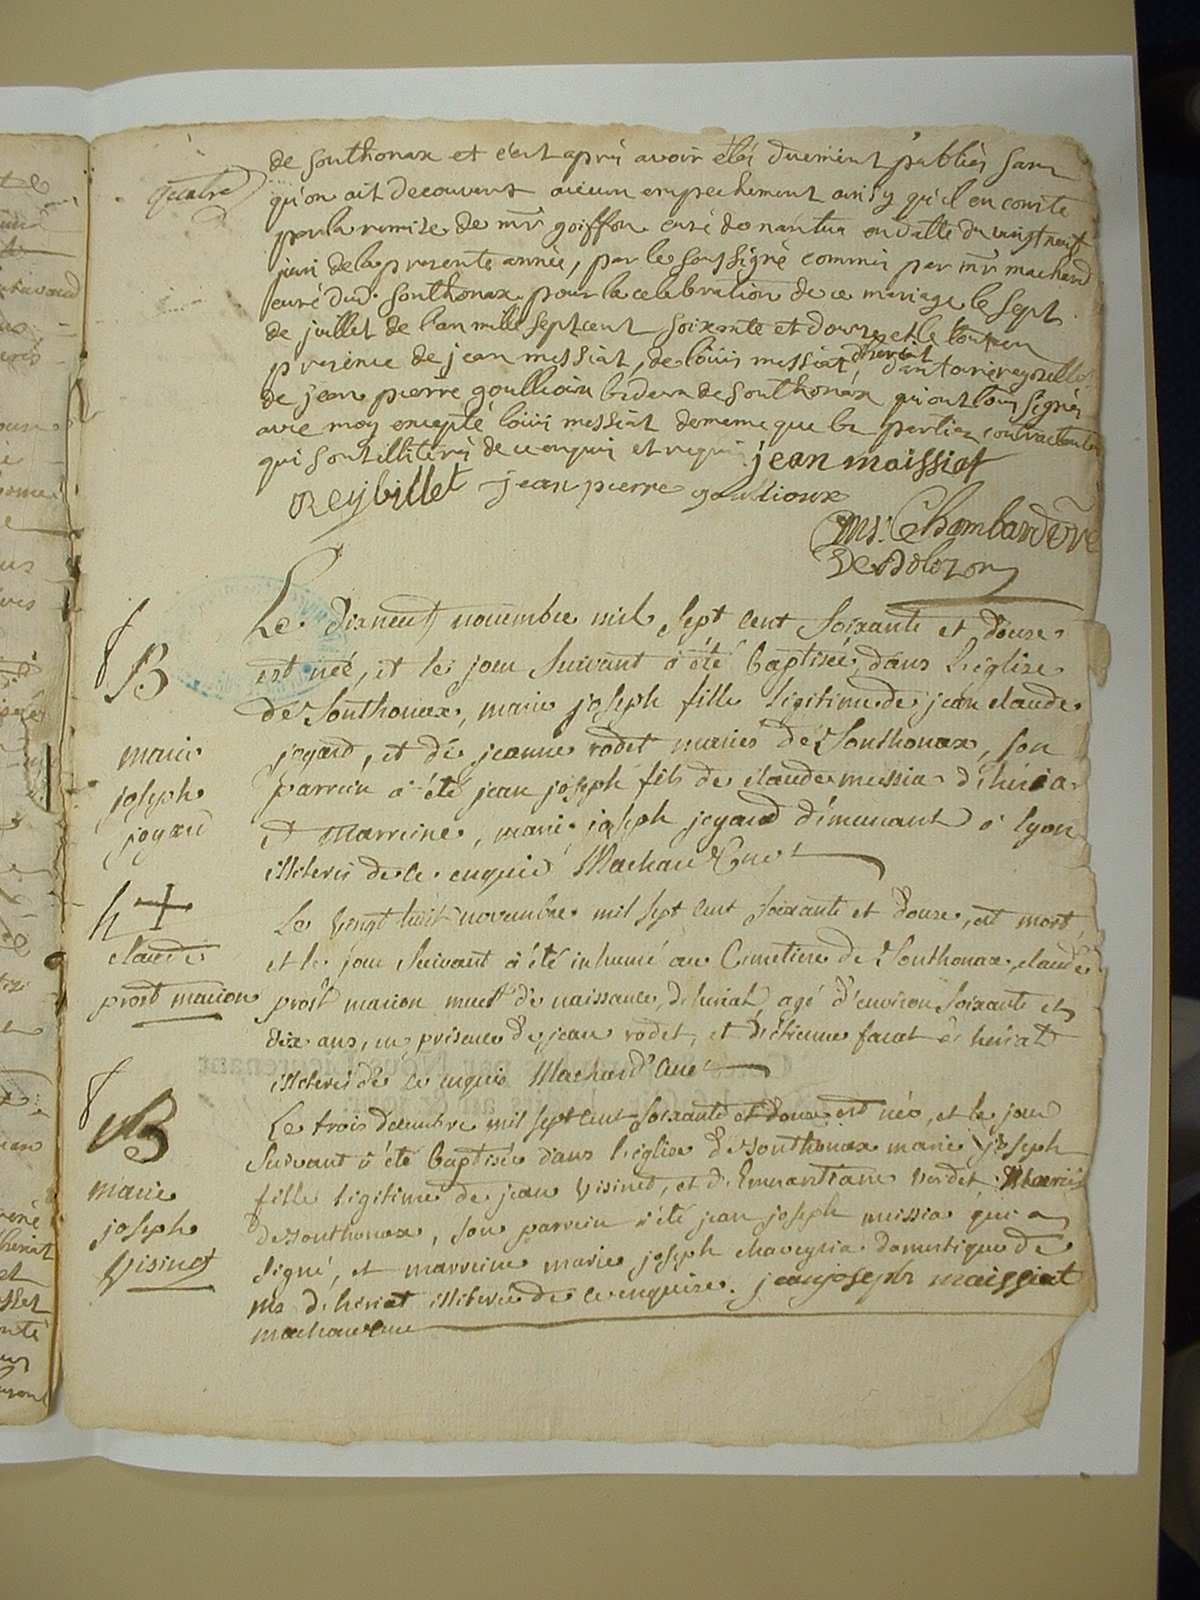 quatre
de Sonthonax et c'est après avoir étés duement publiés sans
qu'on ait decouvert aucun empechement ainsy qu'il en conste
par la remise de mr goiffon curé de nantua en datte du vingt neuf
juin de la presente année, par le soussigné commis par mr machard
curé dud. Sonthonax pour la celebration de ce mariage le sept
de juillet de l'an mille sept cent soixante et douze et le tout en
presence de jean messiat, de louis messiat d'heriat, d'antoine reybillet
de jean pierre goullioux bedeau de Sonthonax qui ont tous signés
avec moy excepté louis messiat de meme que les parties contractantes
qui sont illiterés de ce enquis et requis jean maissiat
Reybillet jean pierre goullioux
ms. Chambard vre
De Bolozon
Le dixneuf novembre mil sept cent soixante et douze
est neé, et le jour suivant a été baptisée dans l'église
de Sonthonax, marie joseph fille légitime de jean claude
joyard, et de jeanne rodet mariés de Sonthonax, son
parrein a été jean joseph fils de claude messia d'heria
et marreine, marie joseph joyard demeurant a lyon
illiterés de ce enquis Machard Curé
B
marie
joseph
joyard
Le vengt huit novembre mil sept cent soixante et douze, est mort,
et le jour suivant a été inhumé au Cimetiere de Sonthonax, claude
prost marion muet de naissance, d'heriat, agé d'environ soixante et
dix ans, en presence de jean rodet, et d'etienne favet d'heriat
illiterés de ce enquis Machard Curé
h
claude
prost marion
Le trois decembre mil sept cent soixante et douze est née, et le jour
suivant a été baptisée dans l'église de Sonthonax marie joseph
fille légitime de jean Visinet, et d'Emerantiane Verdet Mariés
de Sonthonax, son parrein a été jean joseph messia qui a
signé, et marreine marie joseph chaveyria domestique de
mr d'heriat illiterée de ce enquise. jean joseph maissiat
machard cure
B
marie
joseph
Visinet